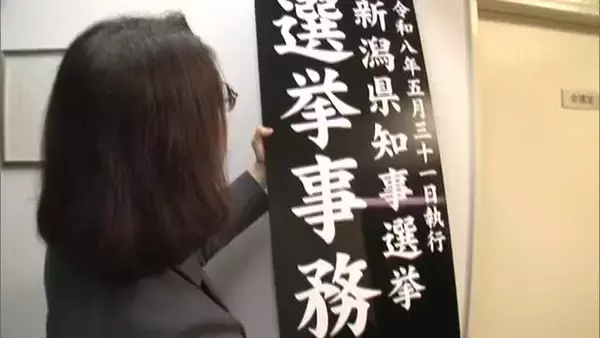 令和八年五月三十一日執行
新潟県知事選挙
選挙事務